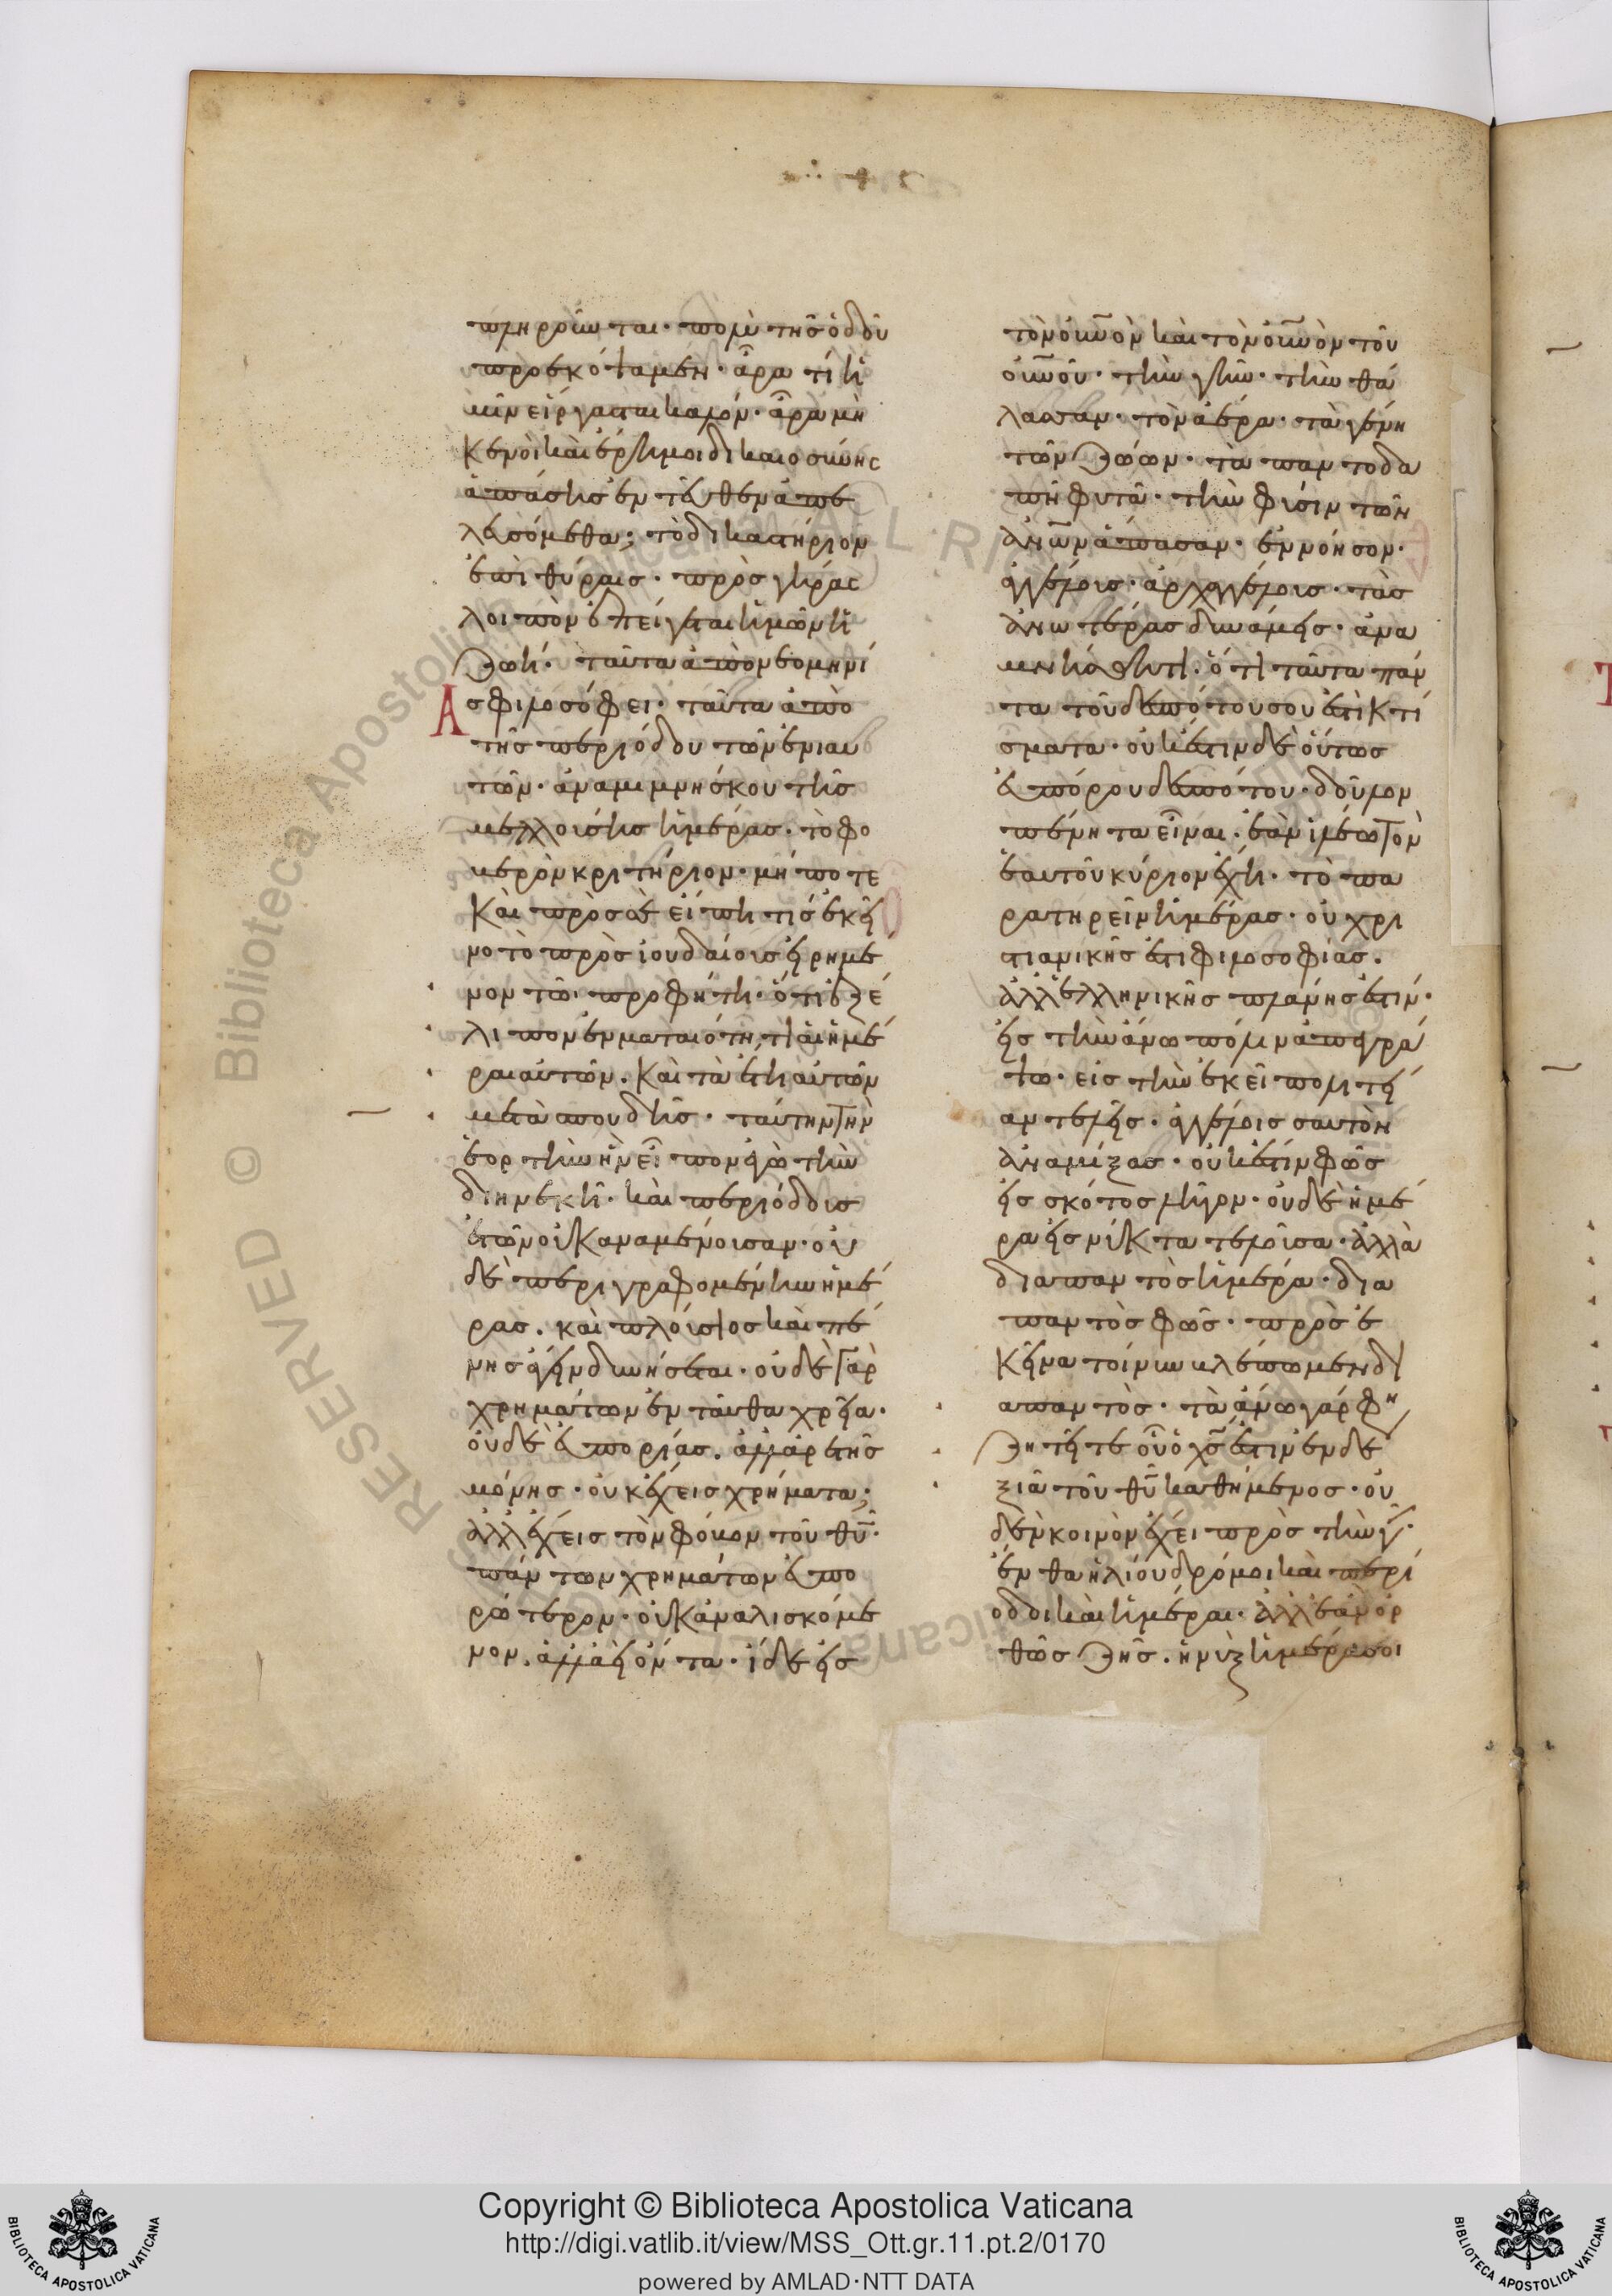 πληροῦται· πολὺ τῆς ὁδοῦ
προεκόψαμεν· ἆρα τί ἡ
μῖν εἴργασται καλόν· ἆρα μὴ
κενοὶ καὶ ἔρημοι δικαιοσύνης
ἁπάσης ἐντεῦθεν ἀπε
λευσόμεθα; τὸ δικαστήριον
ἐπὶ θύραις· πρὸς γῆρας
λοιπὸν ἐπείγεται ἡμῶν ἡ
ζωή. ταῦτα ἀπὸ νεομηνί
ας φιλοσόφει· ταῦτα ἀπὸ
τῆς περιόδου τῶν ἐνιαυ
τῶν· ἀναμιμνήσκου τῆς
μελλούσης ἡμέρας· τὸ φο
βερὸν κριτήριον· μή ποτε
καὶ πρὸς σὲ εἴπη τίς ἐκεῖ
νο τὸ πρὸς ἰουδαίους εἰρημέ
νον τῶι προφήτη· ὅτι ἐξέ
λιπον ἐν ματαιότητι αἱ ἡμέ
ραι αὐτῶν. καὶ τὰ ἔτη αὐτῶν
μετὰ σπουδῆς. ταύτην τὴν
ἑορτὴν ἣν εἶπον ἐγὼ τὴν
διηνεκῆ· καὶ περιόδους
ἐτῶν οὐκ ἀναμένουσαν· οὐ
δὲ περιγραφομένην ἡμέ
ραις. καὶ πλούσιος καὶ πέ
νης ἄγειν δυνήσεται. οὐδὲ γὰρ
χρημάτων ἐνταῦθα χρεία.
οὐδὲ εὐπορίας. ἀλλ' ἀρετῆς
μόνης. οὐκ ἔχεις χρήματα;
ἀλλ' ἔχεις τὸν φόβον τοῦ θυ·
πάντων χρημάτων εὐπο
ρώτερον· οὐκ ἀναλισκόμε
νον. ἀλλ' ἀεὶ ὄντα. ἴδε εἰς
τὸν οὐνὸν καὶ τὸν οὐνὸν τοῦ
οὐνοῦ· τὴν γῆν· τὴν θά
λασσαν· τὸν ἀέρα· τὰ γένη
τῶν ζώων· τὰ παντοδα
πὴ φυτά· τὴν φύσιν τῶν
ἀνων ἅπασαν· ἐννόησον·
ἀγγέλους· ἀρχαγγέλους· τὰς
ἀνωτέρας δυνάμεις· ἀνα
μνήσθητι· ὅτι ταῦτα πάν
τα τοῦ δεσπότου σου ἐστὶ κτί
σματα· οὐκ ἔστιν δὲ οὕτως
εὐπόρου δεσπότου· δοῦλον
πένητα εἶναι· ἐὰν ἵλεω τὸν
ἑαυτοῦ κύριον ἔχη· τὸ πα
ρατηρεῖν ἡμέρας· οὐ χρι
στιανικῆς ἐστι φιλοσοφίας.
ἀλλ' ἑλληνικῆς πλάνης ἐστίν·
εἰς τὴν ἄνω πόλιν ἀπεγρά
φω· εἰς τὴν ἐκεῖ πολιτεί
αν τελεῖς· ἀγγέλοις σαυτὸν
ἀναμίξας· οὐκ ἔστιν φῶς
εἰς σκότος λῆγον· οὐδὲ ἡμέ
ρα εἰς νύκτα τελοῦσα· ἀλλὰ
διαπαντὸς ἡμέρα· δια
παντὸς φῶς· πρὸς ἐ
κεῖνα τοίνυν βλέπωμεν δι
απαντὸς· τὰ ἄνω γάρ φη
ζητεῖτε οὗ ὁ χς ἐστιν ἐν δε
ξιᾶ τοῦ θυ καθήμενος· οὐ
δὲν κοινὸν ἔχει πρὸς τὴν γῆν·
ἔνθα ἡλίου δρόμοι καὶ περί
οδοι καὶ ἡμέραι. ἀλλ' ἐὰν ὀρ
θῶς ζῆς. ἡ νὺξ ἡμέρα σοι
Copyright © Biblioteca Apostolica Vaticana
http://digi.vatlib.it/view/MSS_Ott.gr.11.pt.2/0170
powered by AMLAD·NTT DATA